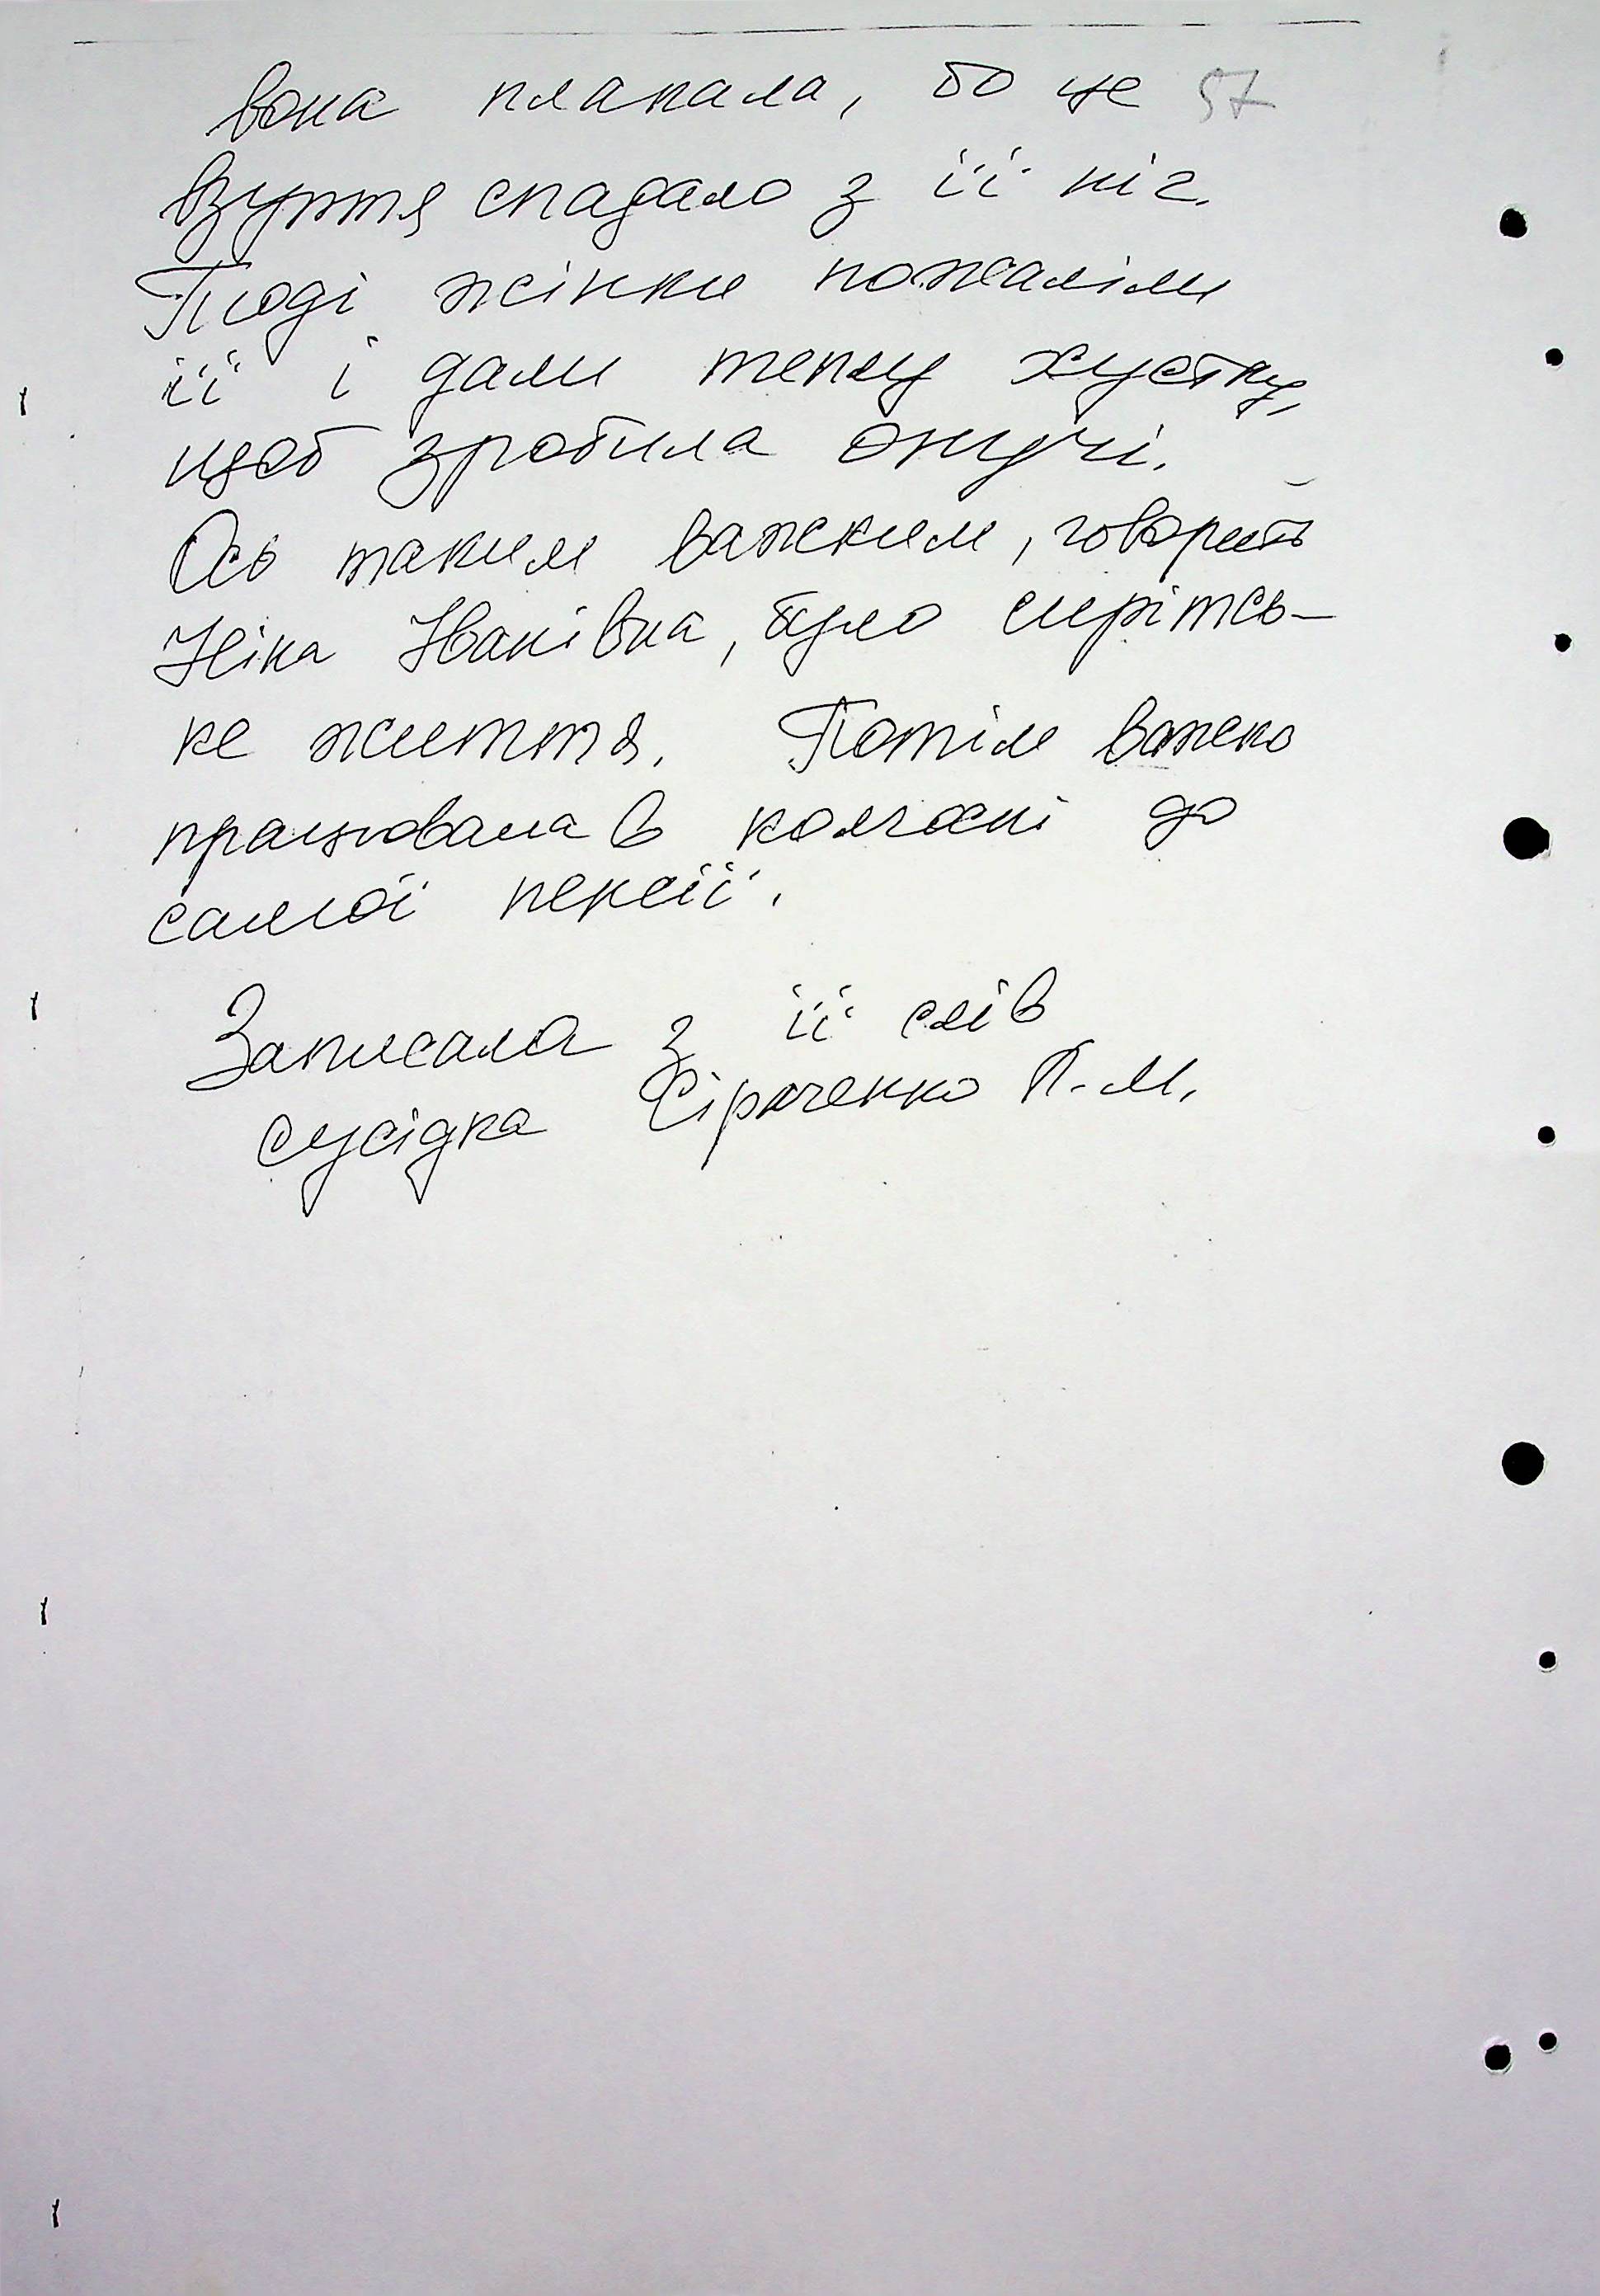 вона плакала, бо це 57
взуття спадало з її ніг.
Тоді жінки пожаліли
її і дали теплу хустку,
щоб зробила онучі.
Ось таким важким, говорить
Ніна Іванівна, було сирітсь-
ке життя. Потім важко
працювала в колгоспі до
самої пенсії.
Записала з її слів
сусідка Сірченко П.М.